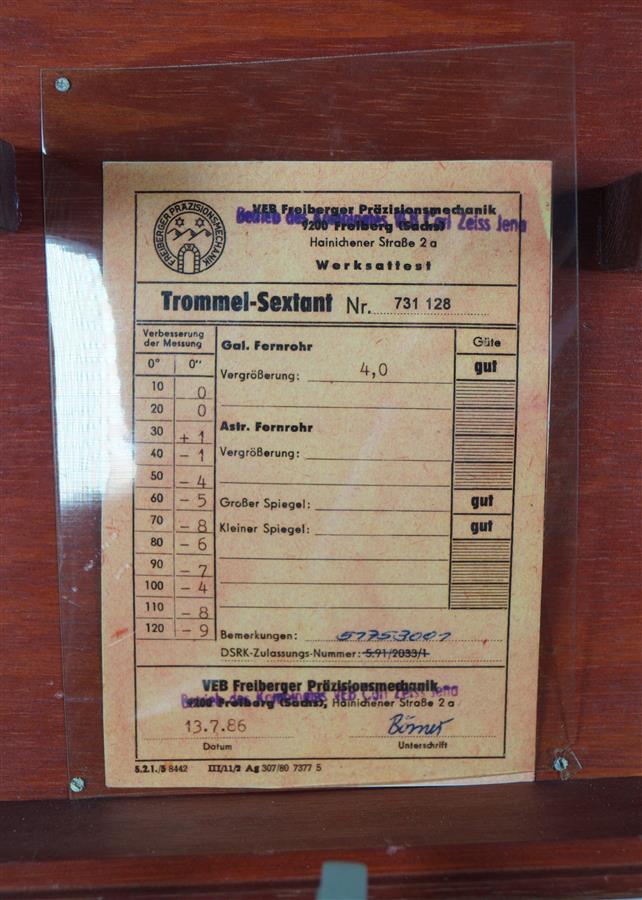 FREIBERGER PRÄZISIONSMECHANIK
VEB Freiberger Präzisionsmechanik
Betrieb des Kombinates VEB Carl Zeiss Jena
9200 Freiberg (Sachs)
Hainichener Straße 2 a
Werksattest
Trommel-Sextant Nr. 731 128
Verbesserung der Messung
Gal. Fernrohr
Güte
0° 0"
Vergrößerung: 4,0 gut
10 0
20 0
Astr. Fernrohr
30 + 1
Vergrößerung:
40 - 1
50 - 4
60 - 5
Großer Spiegel: gut
70 - 8
Kleiner Spiegel: gut
80 - 6
90 - 7
100 - 4
110 - 8
120 - 9
Bemerkungen: 51753001
DSRK-Zulassungs-Nummer: 5.91/2033/1
VEB Freiberger Präzisionsmechanik
Betrieb des Kombinates VEB Carl Zeiss Jena
9200 Freiberg (Sachs), Hainichener Straße 2 a
13.7.86 Börner
Datum Unterschrift
5.2.1./5 8442 III/11/2 Ag 307/80 7377 5